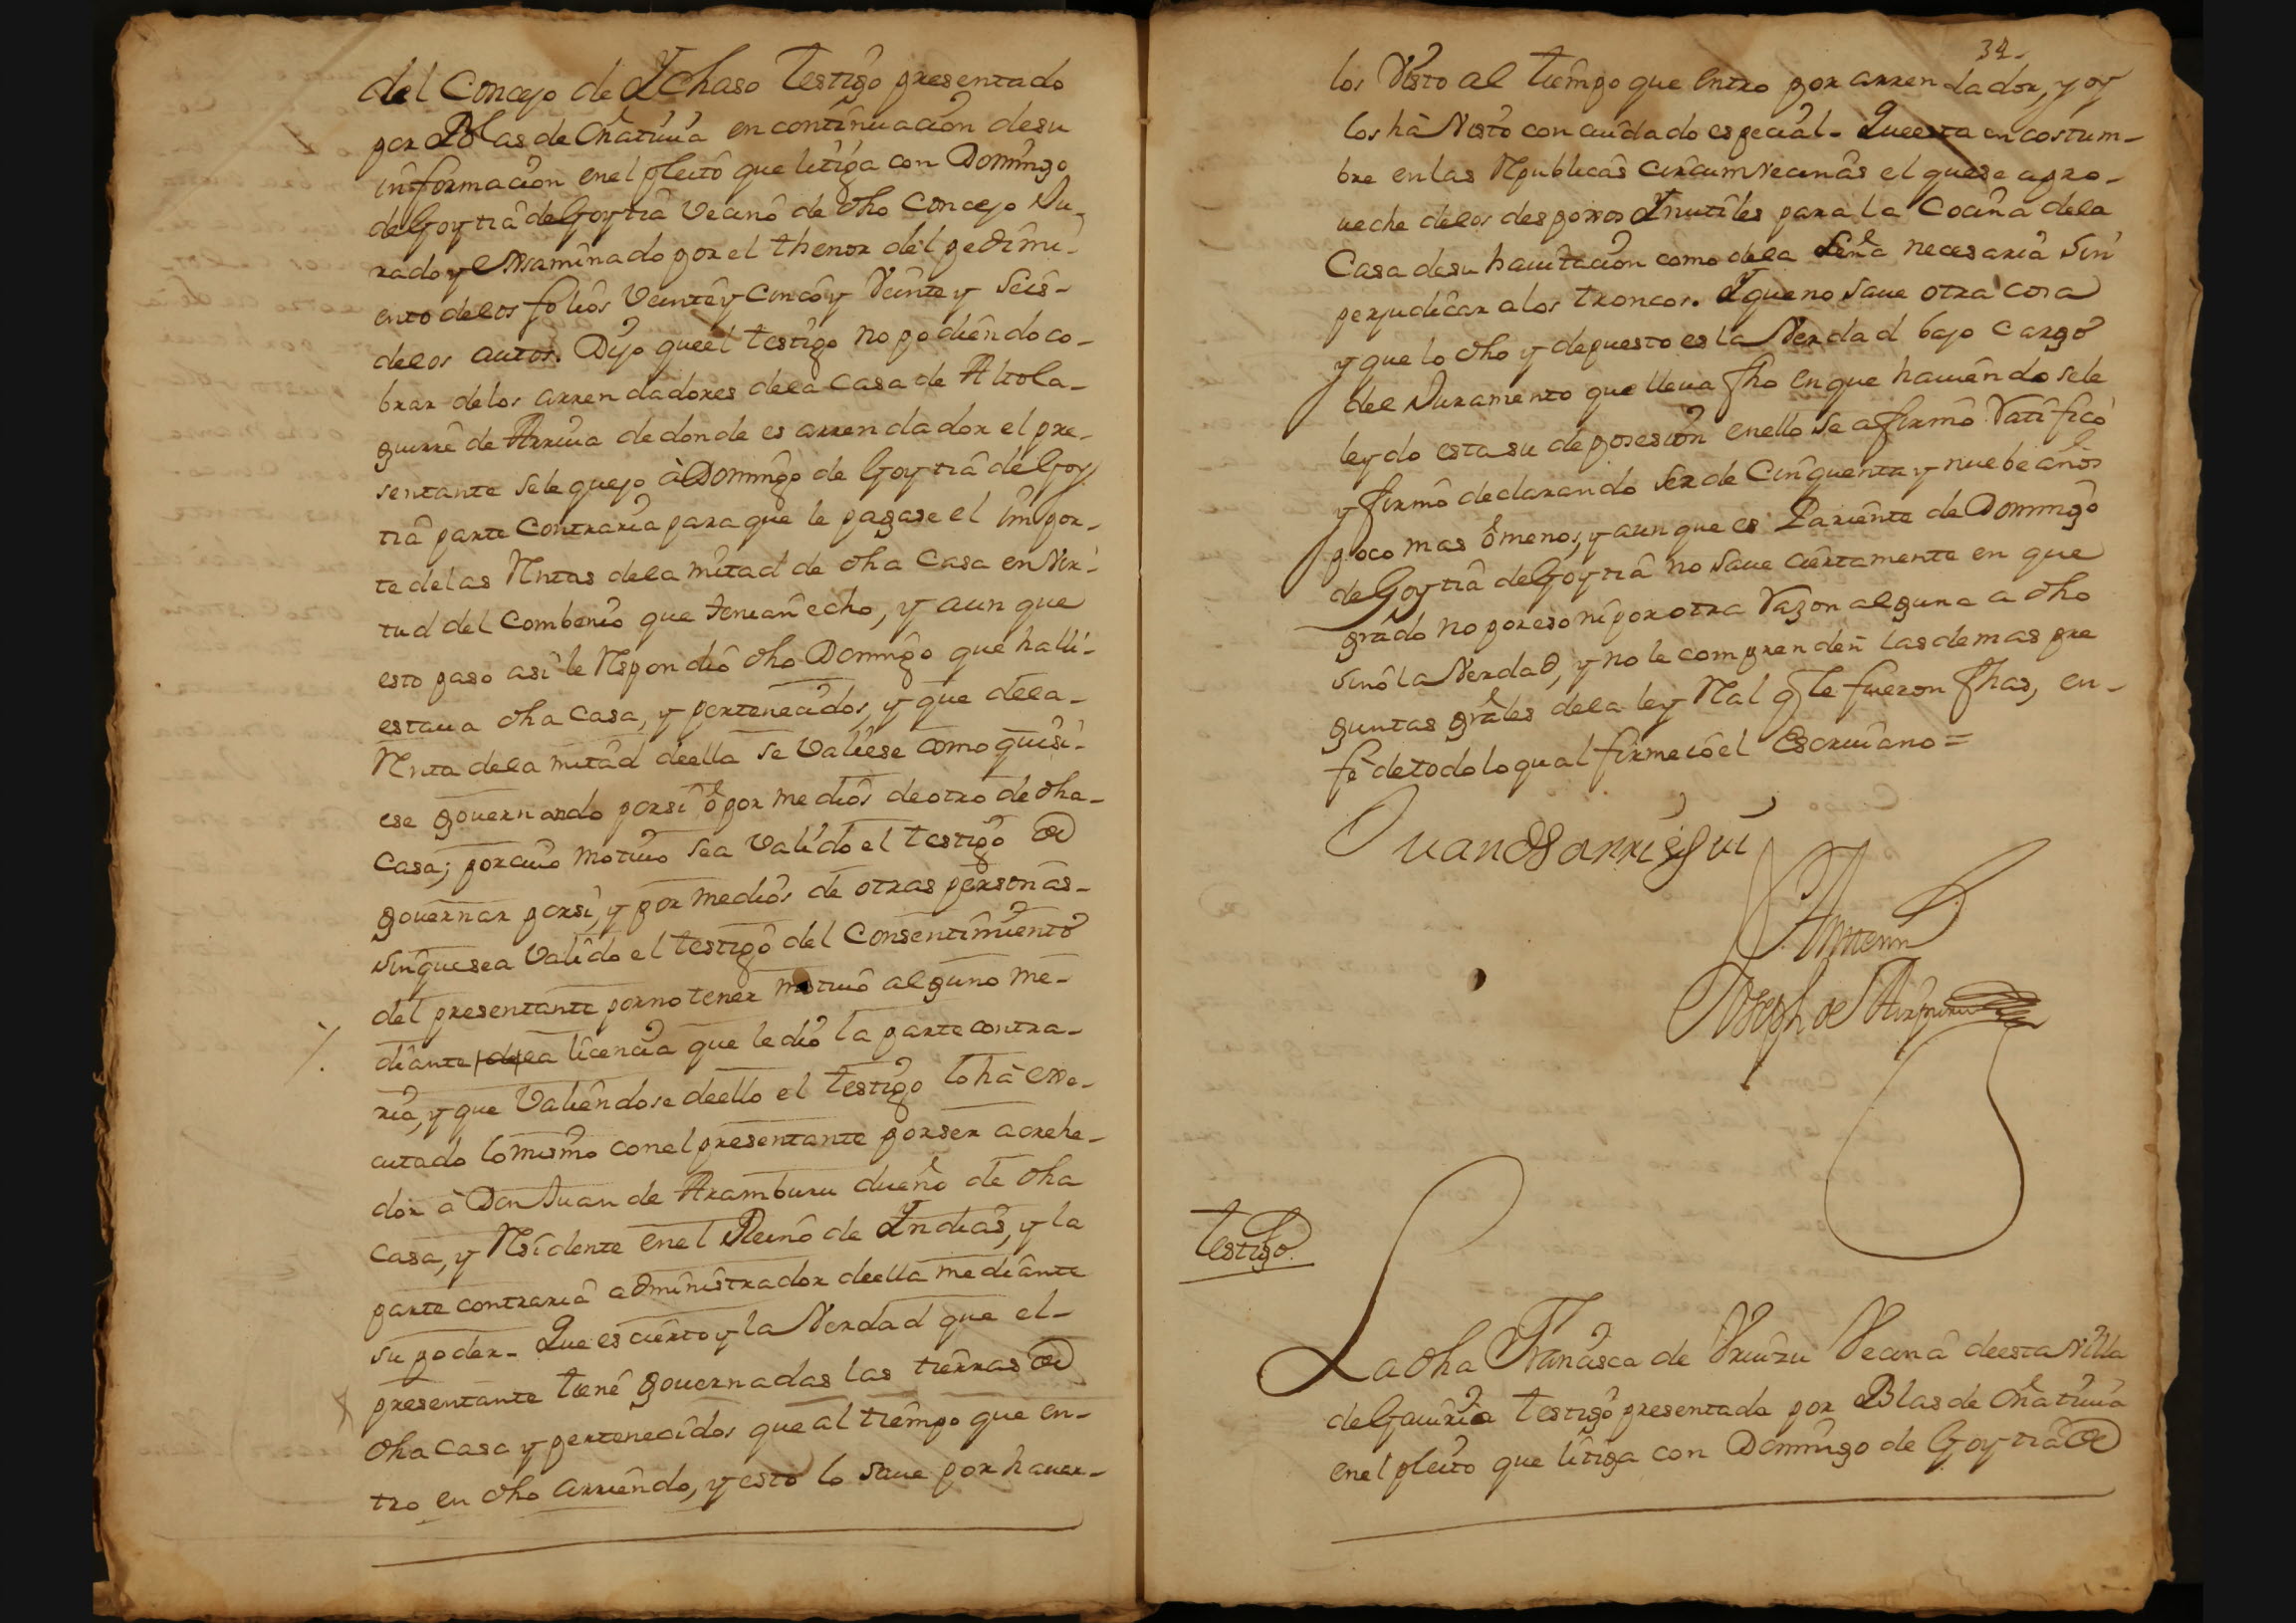 del Concejo de Ychaso testigo presentado
por Blas de Oñativia en continuacion de su
informacion en el pleito que litiga con Domingo
de Goytia de Goytia vecino de dho Concejo Ju-
rado y examinado por el thenor del pedimi-
ento de los folios veinte y cinco y veinte y seis-
de los autos. Dijo que el testigo no podiendo co-
brar de los arrendadores de la casa de Altola-
guirre de Arriva de donde es arrendador el pre-
sentante se le quejo à Domingo de Goytia de Goy
tia parte contraria para que le pagase el impor-
te de las Rentas de la mitad de dha casa en vir-
tud del combenio que tenian echo, y aunque
esto paso asi le Respondio dho Domingo que halli-
estava dha casa, y pertenecidos, y que de la-
Renta de la mitad de ella se valiese como quisi-
ese governando por si ô por medios de otro de dha-
casa; por cuio motivo sea valido el testigo de
governar por si, y por medios de otras personas-
sin que sea valido el testigo del consentimiento
del presentante por no tener motivo alguno me-
diante de la licencia que le dio la parte contra-
ria, y que valiendose de ello el testigo lo hà exe-
cutado lo mismo con el presentante por ser acrehe-
dor à Don Juan de Aramburu dueño de dha
casa, y Residente en el Reino de Yndias, y la
parte contraria administrador de ella mediante
su poder- Que es cierto y la verdad que el-
presentante tiene governadas las tierras de
dha casa y pertenecidos que al tiempo que en-
tro en dho arriendo, y esto lo save por haver-
34.
los visto al tiempo que entro por arrendador, y oy
los hà visto con cuidado especial- Que esta en costum-
bre en las Republicas circumvecinas el que se apro-
veche de los despojos Ynutiles para la cocina de la
Casa de su havitacion como de la leña necesaria sin
perjudicar a los troncos. Y que no save otra cosa
y que lo dho y depuesto es la verdad bajo cargo
del Juramento que lleva fho en que haviendosele
leydo esta su deposesion en ello se afirmo Ratificò
y firmo declarando ser de cinquenta y nuebe años
poco mas ô menos, y aunque es Pariente de Domingo
de Goytia de Goytia no save ciertamente en que
grado no por eso ni por otra Razon alguna a dho
sino la verdad, y no le comprenden las demas pre
guntas grâles de la ley Real q̃ le fueron fhas, en-
fè de todo lo qual firme io el Escrivano=
Juan de Sarriegui
Antemi
Joseph de Aizpuru
Testigo.
La dha Francisca de Uruizu Vecina de esta villa
de Gaviria testigo presentada por Blas de Oñativia
en el pleito que litiga con Domingo de Goytia de